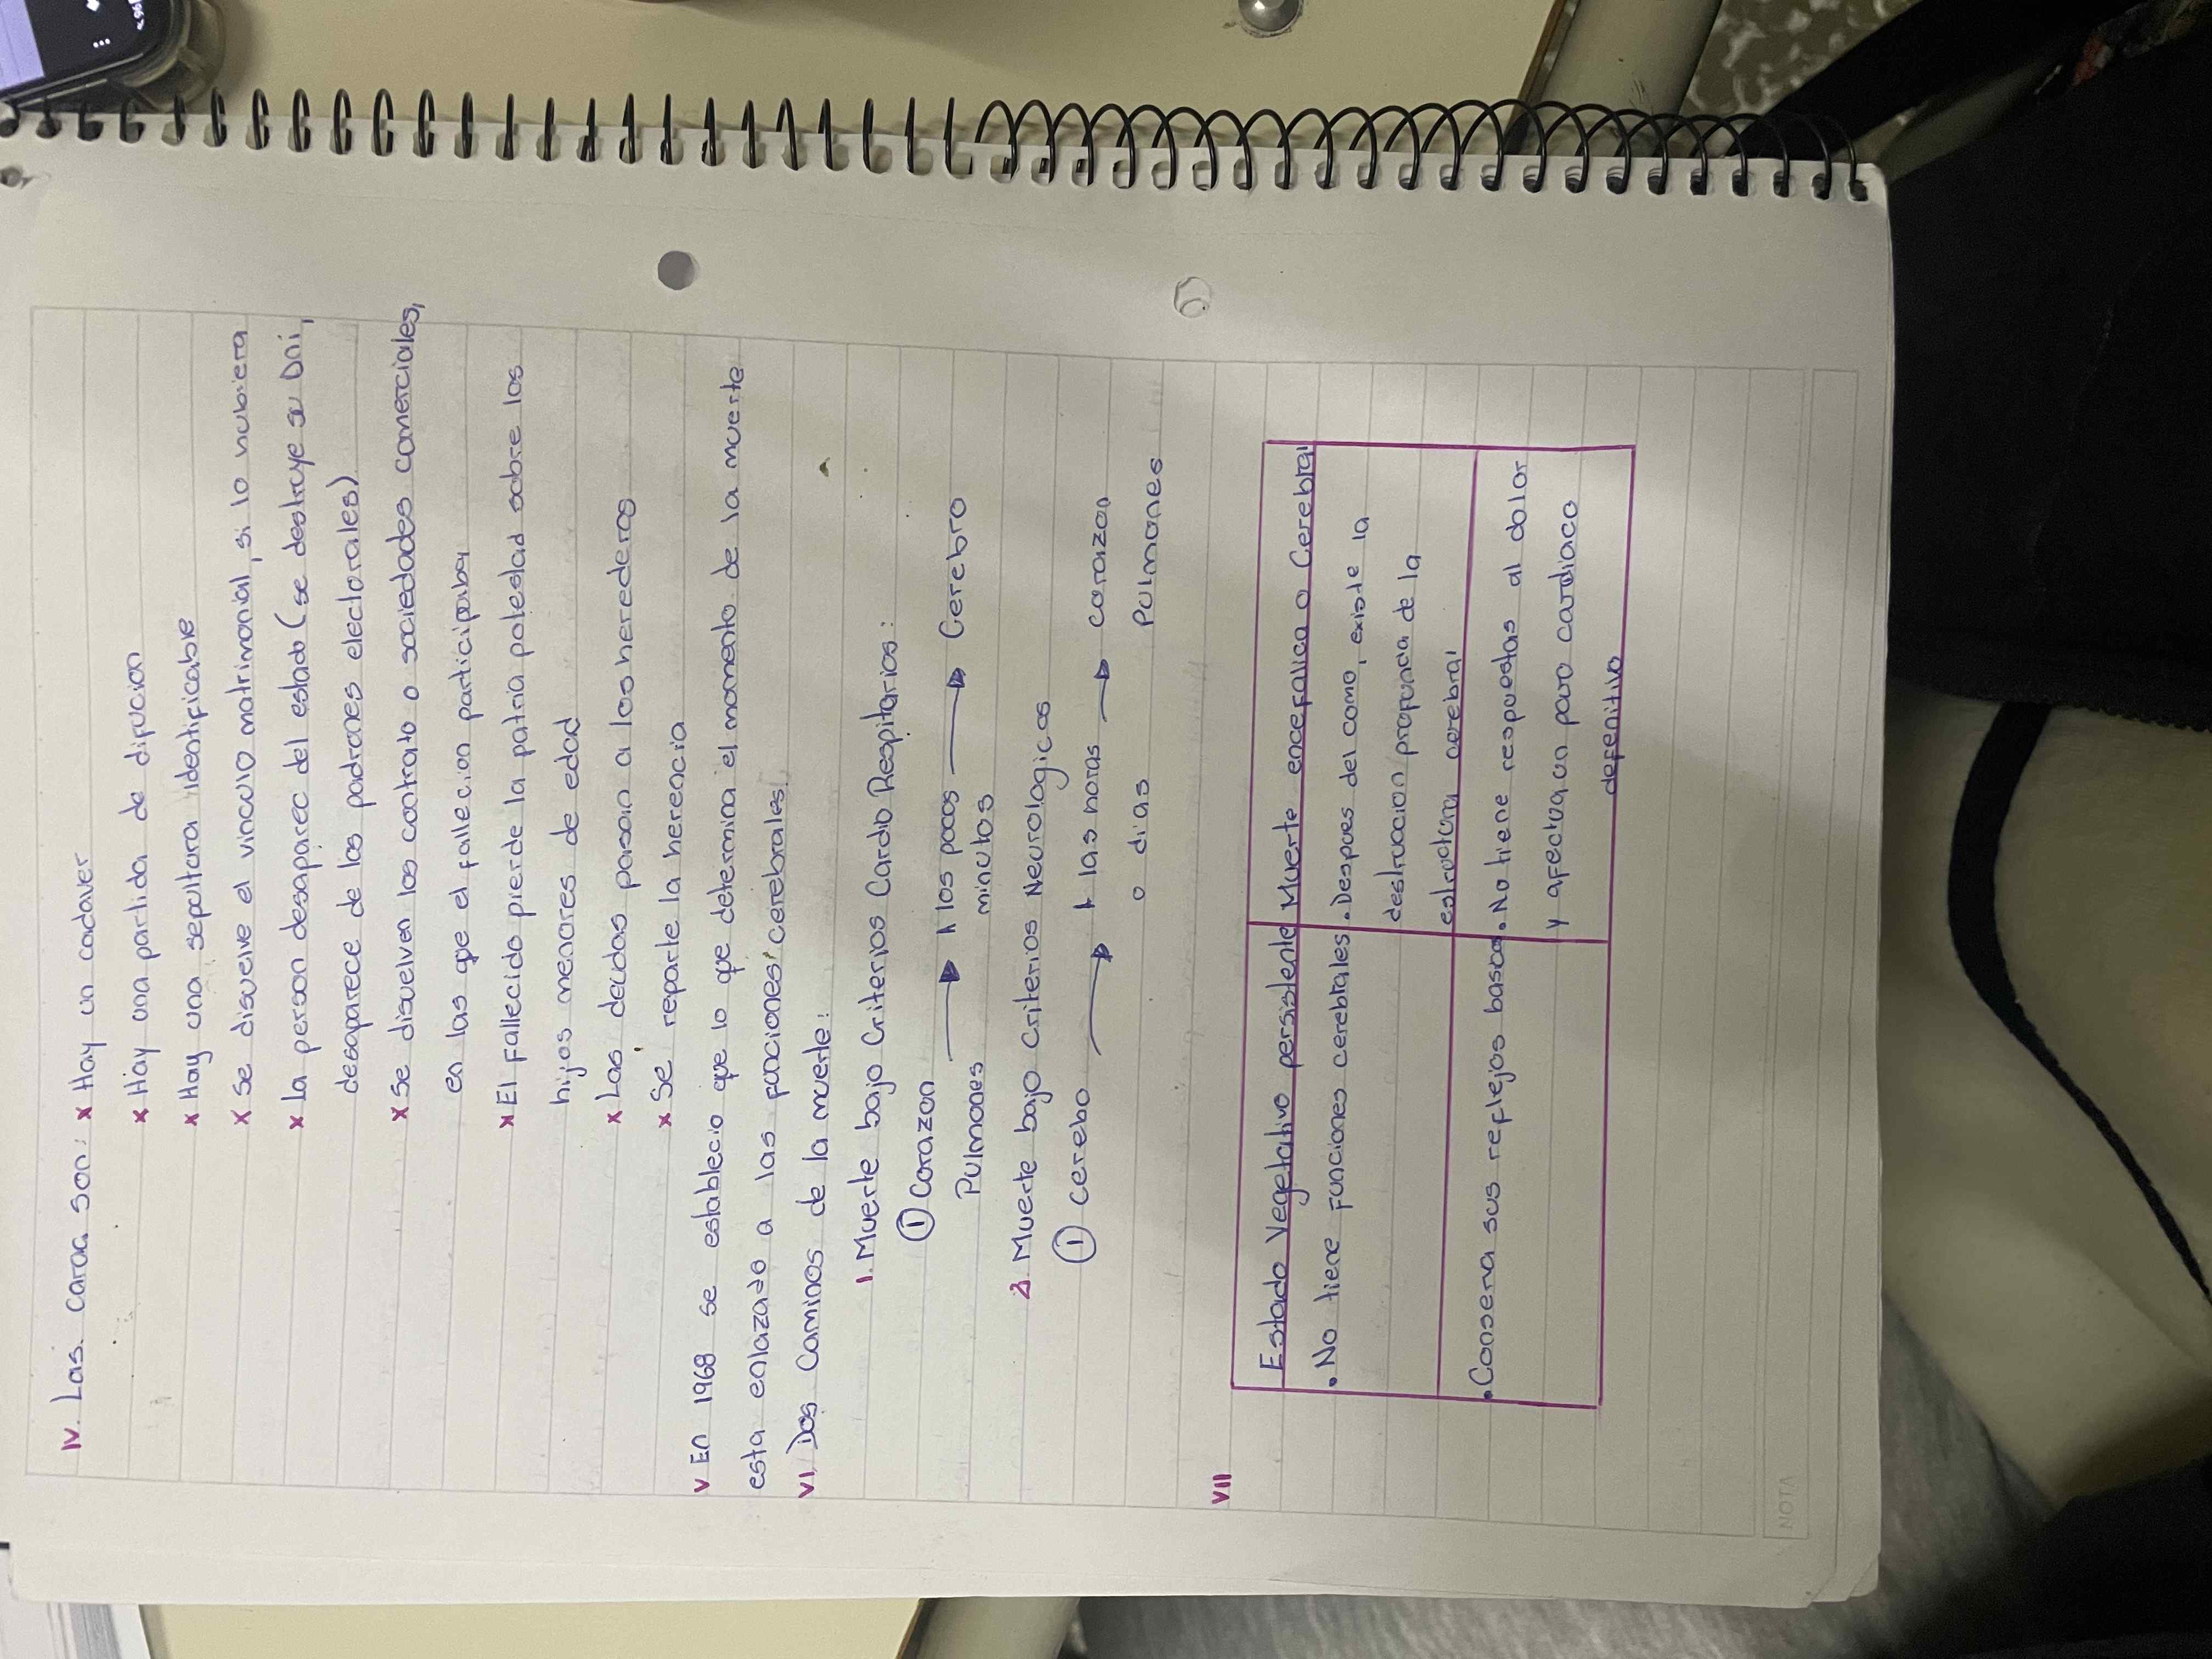 IV. Las. Carac. son: x Hay un cadaver
x Hay una partida de difucion
x Hay una sepultura identificable
x Se disuelve el vinculo matrimonial, si lo hubiera
x La person desaparec del estado (se destruye su Dni,
desaparece de los padrones electorales)
x Se disuelven los contrato o sociedades comerciales,
en las que el fallecion participaba
x El fallecido pierde la patria potestad sobre los
hijos menores de edad
x Las deudas pasan a los herederos
x Se reparte la herencia
V En 1968 se establecio que lo que determina el momento de la muerte
esta enlazado a las funciones cerebrales.
VI. Dos Caminos de la muerte:
1. Muerte bajo Criterios Cardio Respitarios:
① Corazon → A los pocos → Cerebro
Pulmones minutos
2. Muerte bajo Criterios Neurologicos
① cerebo → A las horas → corazon
o dias Pulmones
VII
Estado Vegetativo persistente Muerte encefalica o Cerebral
• No tiene Funciones cerebrales. • Despues del coma, existe la
destruccion profunda de la
estructura cerebral
• Conserva sus reflejos basicos. • No tiene respuestas al dolor
y afectua un paro cardiaco
defenitivo
NOTA